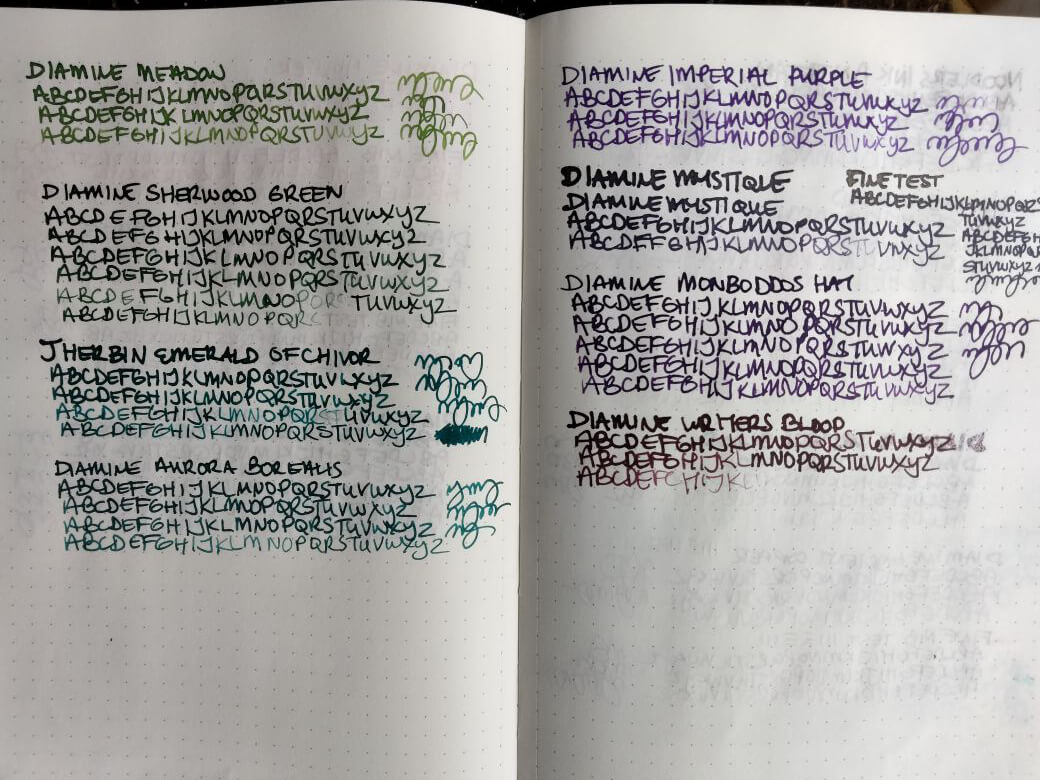 DIAMINE MEADOW
ABCDEFGHIJKLMNOPQRSTUVWXYZ
ABCDEFGHIJKLMNOPQRSTUVWXYZ
ABCDEFGHIJKLMNOPQRSTUVWXYZ
DIAMINE SHERWOOD GREEN
ABCDEFGHIJKLMNOPQRSTUVWXYZ
ABCDEFGHIJKLMNOPQRSTUVWXYZ
ABCDEFGHIJKLMNOPQRSTUVWXYZ
ABCDEFGHIJKLMNOPQRSTUVWXYZ
ABCDEFGHIJKLMNOPQRS TUVWXYZ
ABCDEFGHIJKLMNOPQRS TUVWXYZ
JHERBIN EMERALD OF CHIVOR
ABCDEFGHIJKLMNOPQRSTUVWXYZ
ABCDEFGHIJKLMNOPQRSTUVWXYZ
ABCDEFGHIJKLMNOPQRSTUVWXYZ
ABCDEFGHIJKLMNOPQRSTUVWXYZ
DIAMINE AURORA BOREALIS
ABCDEFGHIJKLMNOPQRSTUVWXYZ
ABCDEFGHIJKLMNOPQRSTUVWXYZ
ABCDEFGHIJKLMNOPQRSTUVWXYZ
ABCDEFGHIJKLMNOPQRSTUVWXYZ
DIAMINE IMPERIAL PURPLE
ABCDEFGHIJKLMNOPQRSTUVWXYZ
ABCDEFGHIJKLMNOPQRSTUVWXYZ
ABCDEFGHIJKLMNOPQRSTUVWXYZ
DIAMINE MYSTIQUE
DIAMINE MYSTIQUE
ABCDEFGHIJKLMNOPQRSTUVWXYZ
ABCDEFGHIJKLMNOPQRSTUVWXYZ
FINE TEST
ABCDEFGHIJKLMNOPQRS
TUVWXYZ
ABCDEFGH
JKLMNOPQ
STUVWXYZ
DIAMINE MONBODDOS HAT
ABCDEFGHIJKLMNOPQRSTUVWXYZ
ABCDEFGHIJKLMNOPQRSTUVWXYZ
ABCDEFGHIJKLMNOPQRSTUVWXYZ
ABCDEFGHIJKLMNOPQRSTUVWXYZ
ABCDEFGHIJKLMNOPQRSTUVWXYZ
DIAMINE WRITERS BLOOD
ABCDEFGHIJKLMNOPQRSTUVWXYZ
ABCDEFGHIJKLMNOPQRSTUVWXYZ
ABCDEFGHIJKL